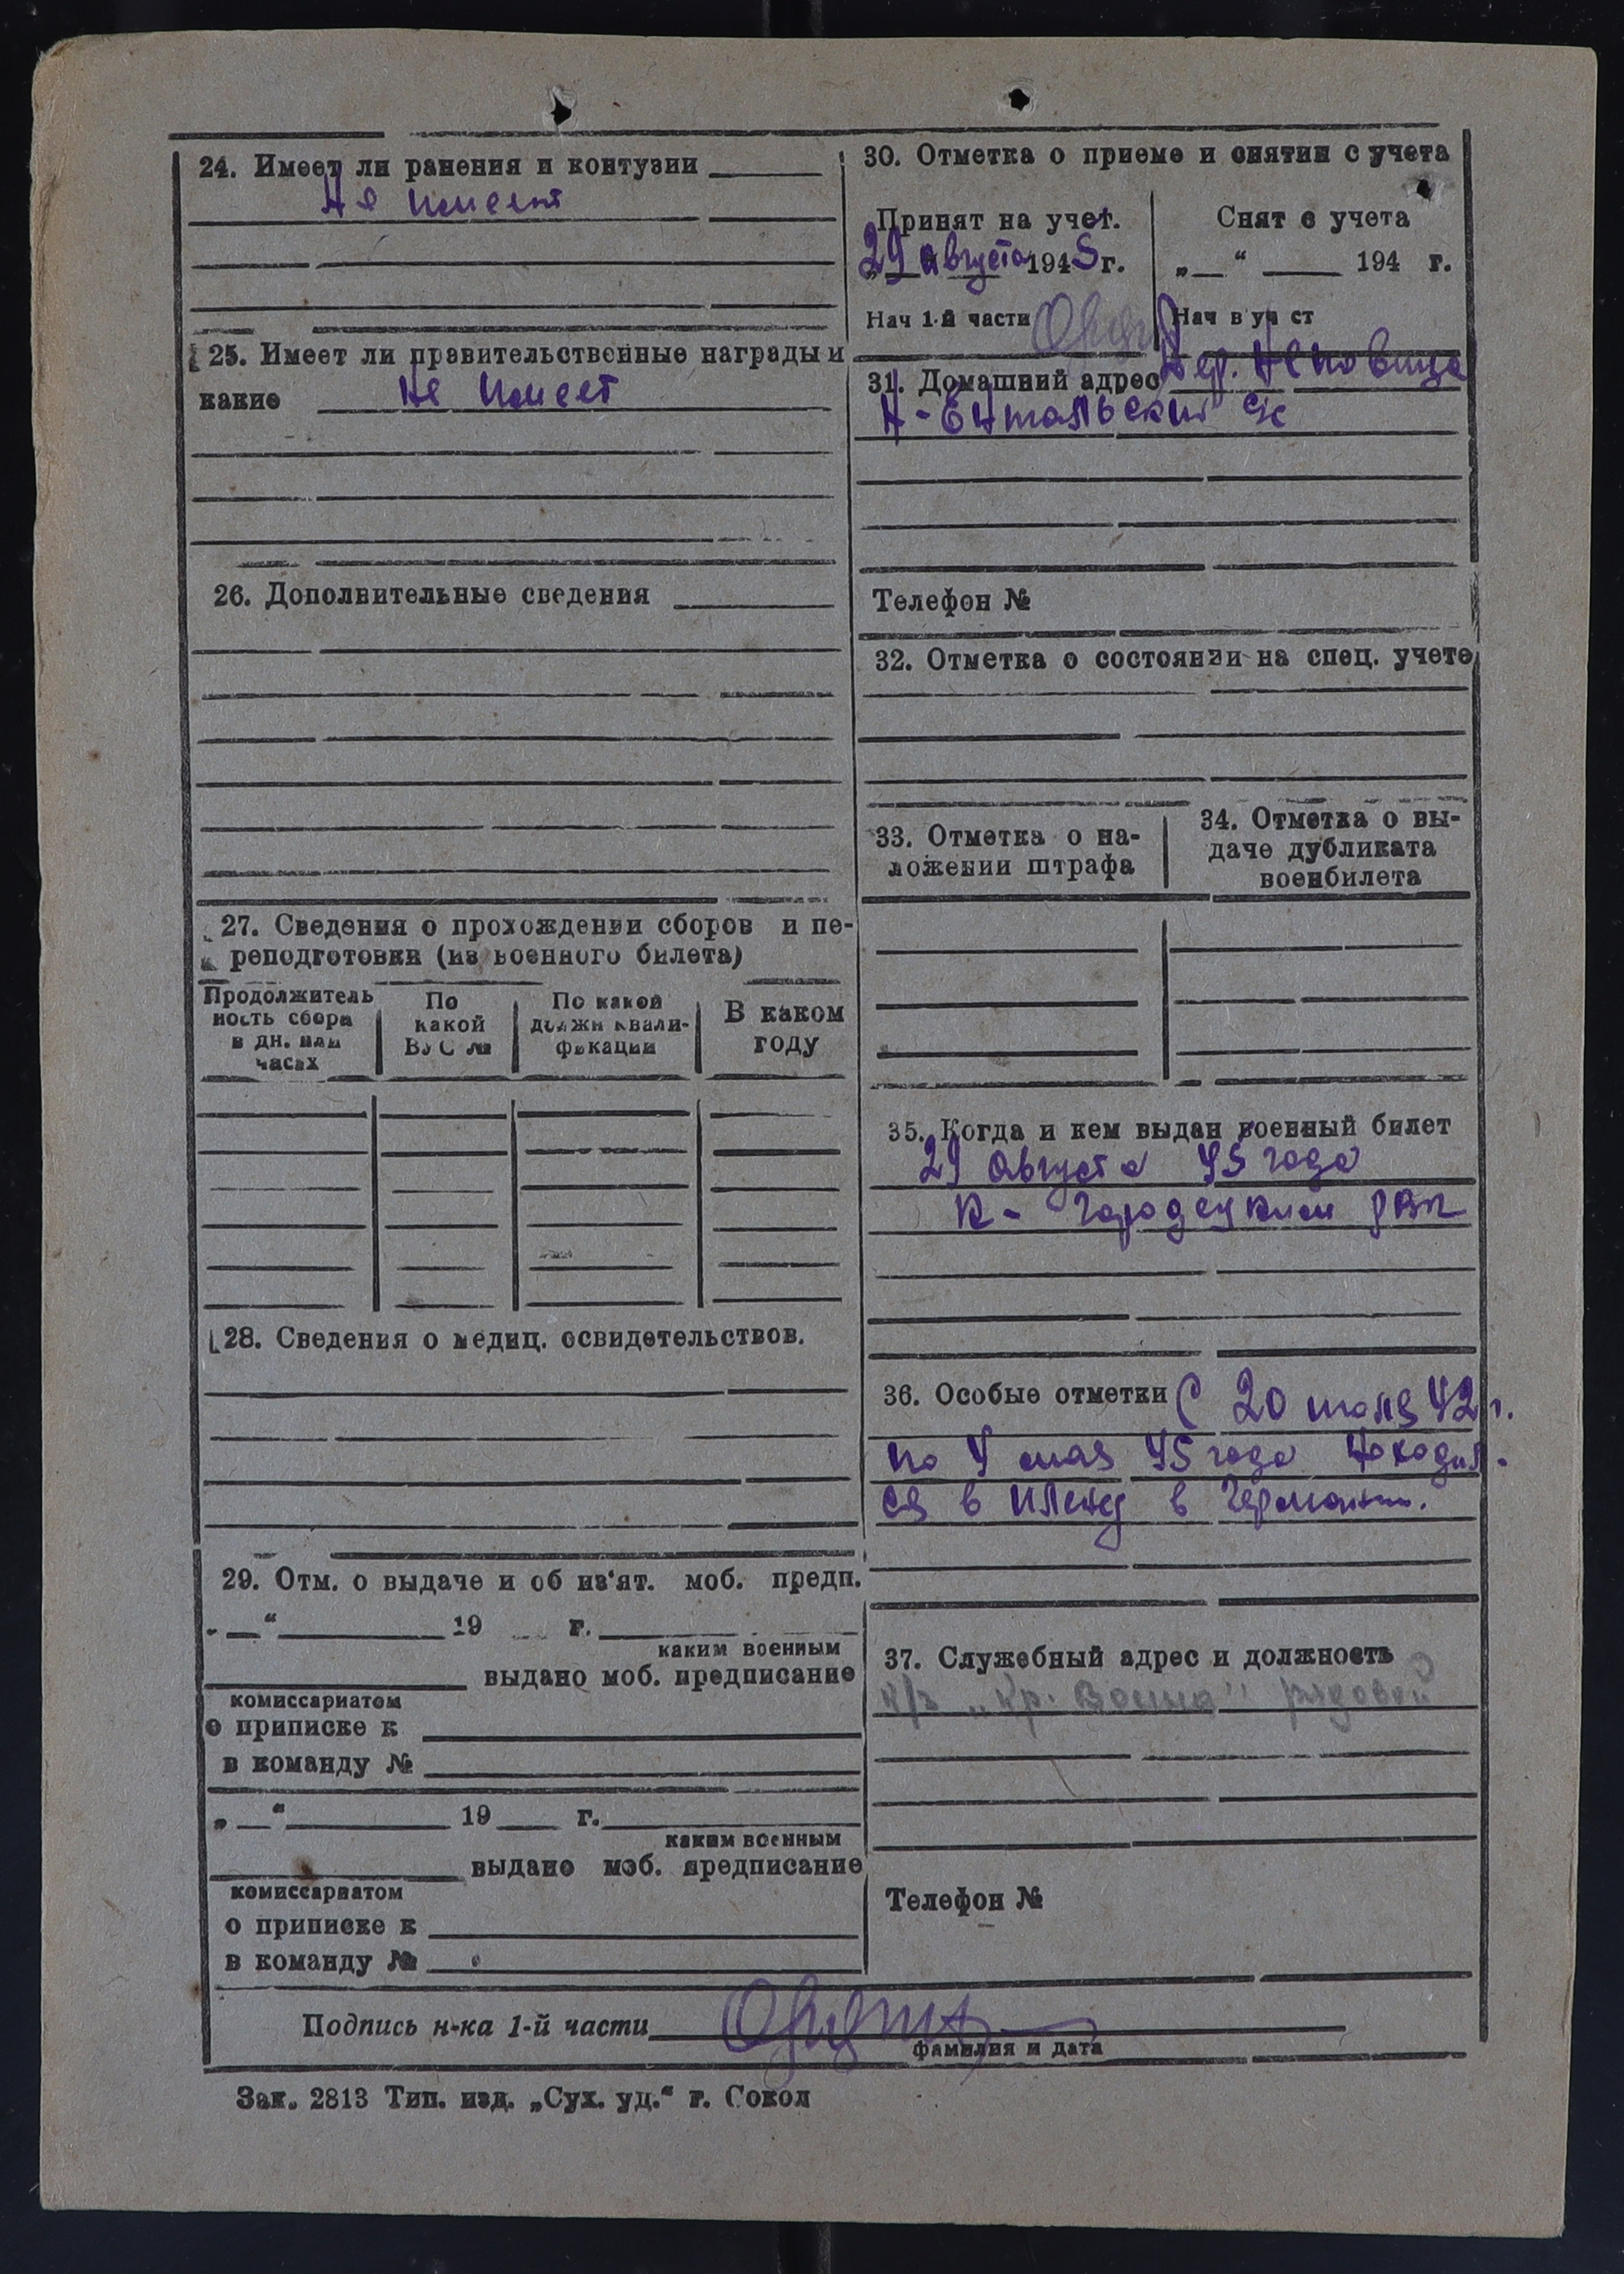 24. Имеет ли ранения и контузии
Не имеет
25. Имеет ли правительственные награды и
какие Не имеет
26. Дополнительные сведения
27. Сведения о прохождении сборов и пе-
реподготовки (из военного билета)
Продолжитель
ность сбора
в дн. или
часах
По
какой
ВУС №
По какой
должн квали-
фикации
В каком
году
28. Сведения о медиц. освидетельствов.
29. Отм. о выдаче и об из'ят. моб. предп.
„ “ 19 г.
каким военным
выдано моб. предписание
комиссариатом
о приписке к
в команду №
„ “ 19 г.
каким военным
выдано моб. предписание
комиссариатом
о приписке к
в команду №
30. Отметка о приеме и снятии с учета
Принят на учет.
29 августа 1945 г.
Нач 1-й части
Снят с учета
„ “ 194 г.
Нач в уч ст
31. Домашний адрес Дер.
Н-Енгальский с/с
Телефон №
32. Отметка о состоянии на спец. учете
33. Отметка о на-
ложении штрафа
34. Отметка о вы-
даче дубликата
военбилета
35. Когда и кем выдан военный билет
29 августа 45 года
К-Городецким РВК
36. Особые отметки С 20 июля 42 г.
по 4 мая 45 года находил-
ся в плену в Германии.
37. Служебный адрес и должность
к/з „Кр. Воина" рядовой
Телефон №
Подпись н-ка 1-й части
фамилия и дата
Зак. 2813 Тип. изд. „Сух. уд.“ г. Сокол